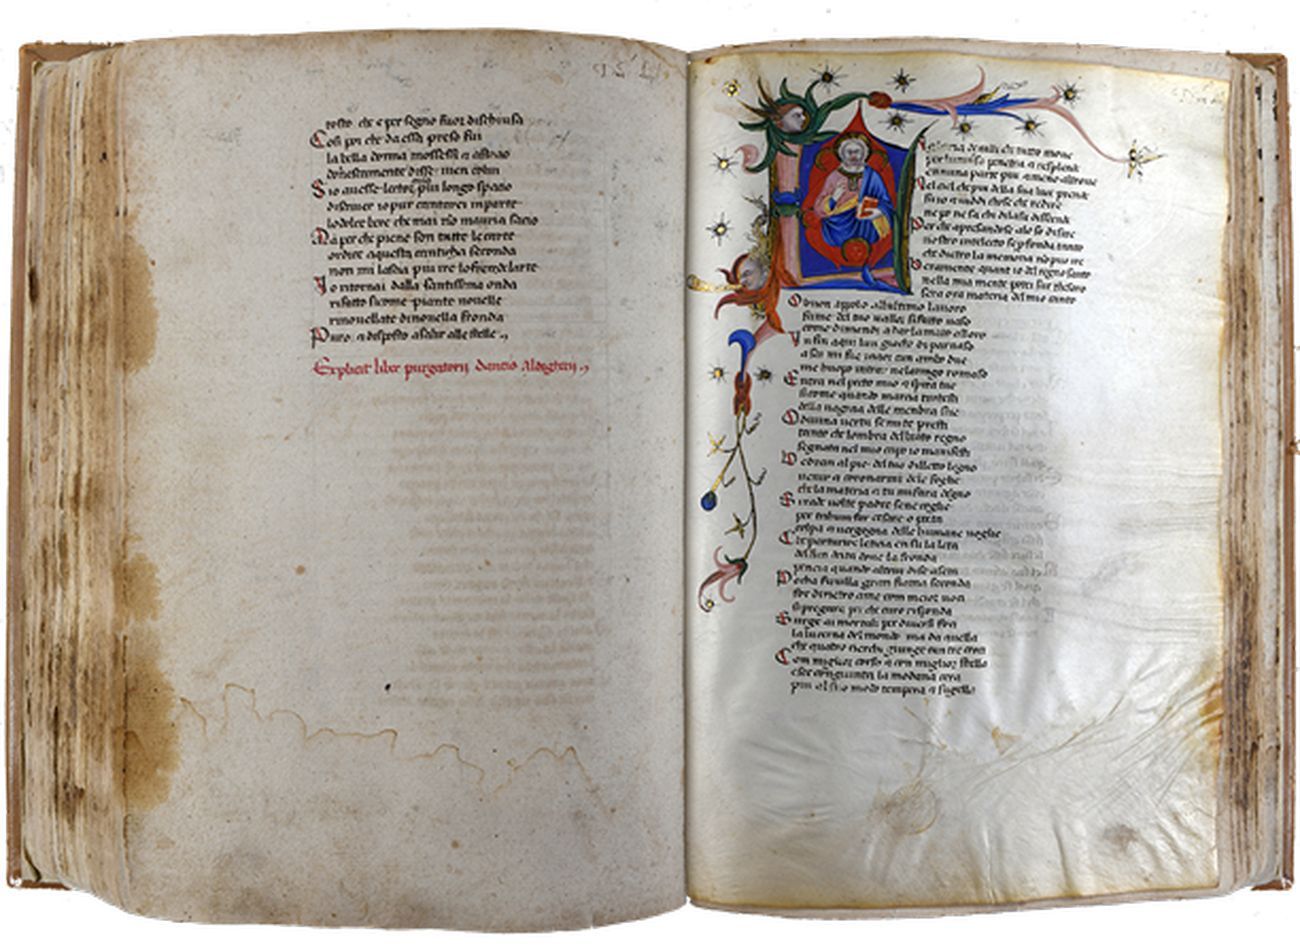 tosto che e per segno fuor dischiusa
Cosi poi che da essa preso fui
la bella donna mossessi a astatio
donnescamente disse uien con lui
S io auesse lector piu longo spatio
discriuer io pur cantarei in parte
lo dolce bere che mai no mauria satio
Ma per che piene son tutte le carte
ordite a questa canticha seconda
non mi lascia piu ire lo fren de larte
Io ritornai dalla santissima onda
rifatto sicome piante nouelle
rinouellate di nouella fronda
Puro a disposto a salir alle stelle
Explicit liber purgatorii dantis Aldigherii
La gloria di colui che tutto moue
per luniuerso penetra a risplende
in una parte piu a meno altroue
Nel ciel che piu della sua luce prende
fu io a uiddi chose che redire
ne po ne sa chi di lasu discende
Per che apresandose al so disire
nostro intelecto si profonda tanto
che dietro la memoria no puo ire
Veramente quant io del regno santo
nella mia mente poti far thesoro
sera ora materia del mio canto
O buon appolo a lultimo lauoro
fame del tuo ualor si fatto uaso
come dimandi a dar lamato alloro
In fin a qui lun giocho di parnaso
assai mi fue ma or con ambo due
me huopo intrar nelaringo romaso
Entra nel petto mio a spira tue
sicome quando marsia traesti
della uagina delle membra sue
O diuina uertu se mi te presti
tanto che lombra del beato regno
segnata nel mio capo io manifesti
Vedrai al pie del tuo diletto legno
uenir a coronarmi de le foglie
che la materia a tu mi fara degno
Si rade uolte padre sene coglie
per triumfar cesare o poeta
colpa a uergogna delle humane uoglie
Che parturir letitia in su la leta
delficha deita dourie la fronda
peneia quando alcun di se asseta
Pocha fauilla gran fiama seconda
forse diretro a me con meior uoci
si pregara per che cirra risponda
Surge ai mortali per diuerse foci
la lucerna del mondo ma da quella
che quatro cerchi giunge con tre croci
Con miglior corso a con miglior stella
esce congiunta la mondana cera
piu al suo modo tempera a sugella